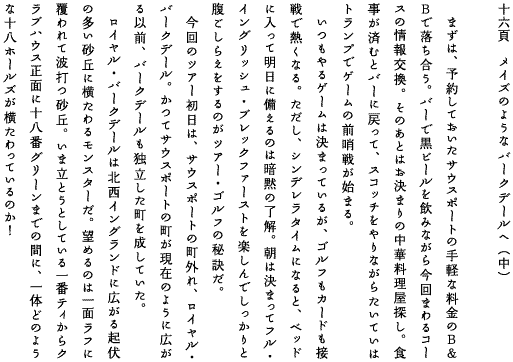 十六頁　メイズのようなバークデールへ（中）
　まずは、予約しておいたサウスポートの手軽な料金のB＆
Bで落ち合う。バーで黒ビールを飲みながら今回まわるコー
スの情報交換。そのあとはお決まりの中華料理屋探し。食
事が済むとバーに戻って、スコッチをやりながらたいていは
トランプでゲームの前哨戦が始まる。
　いつもやるゲームは決まっているが、ゴルフもカードも接
戦で熱くなる。ただし、シンデレラタイムになると、ベッド
に入って明日に備えるのは暗黙の了解。朝は決まってフル・
イングリッシュ・ブレックファーストを楽しんでしっかりと
腹ごしらえをするのがツアー・ゴルフの秘訣だ。
　今回のツアー初日は、サウスポートの町外れ、ロイヤル・
バークデール。かつてサウスポートの町が現在のように広が
る以前、バークデールも独立した町を成していた。
　ロイヤル・バークデールは北西イングランドに広がる起伏
の多い砂丘に横たわるモンスターだ。望めるのは一面ラフに
覆われて波打つ砂丘。いま立とうとしている一番ティからク
ラブハウス正面に十八番グリーンまでの間に、一体どのよう
な十八ホールズが横たわっているのか！